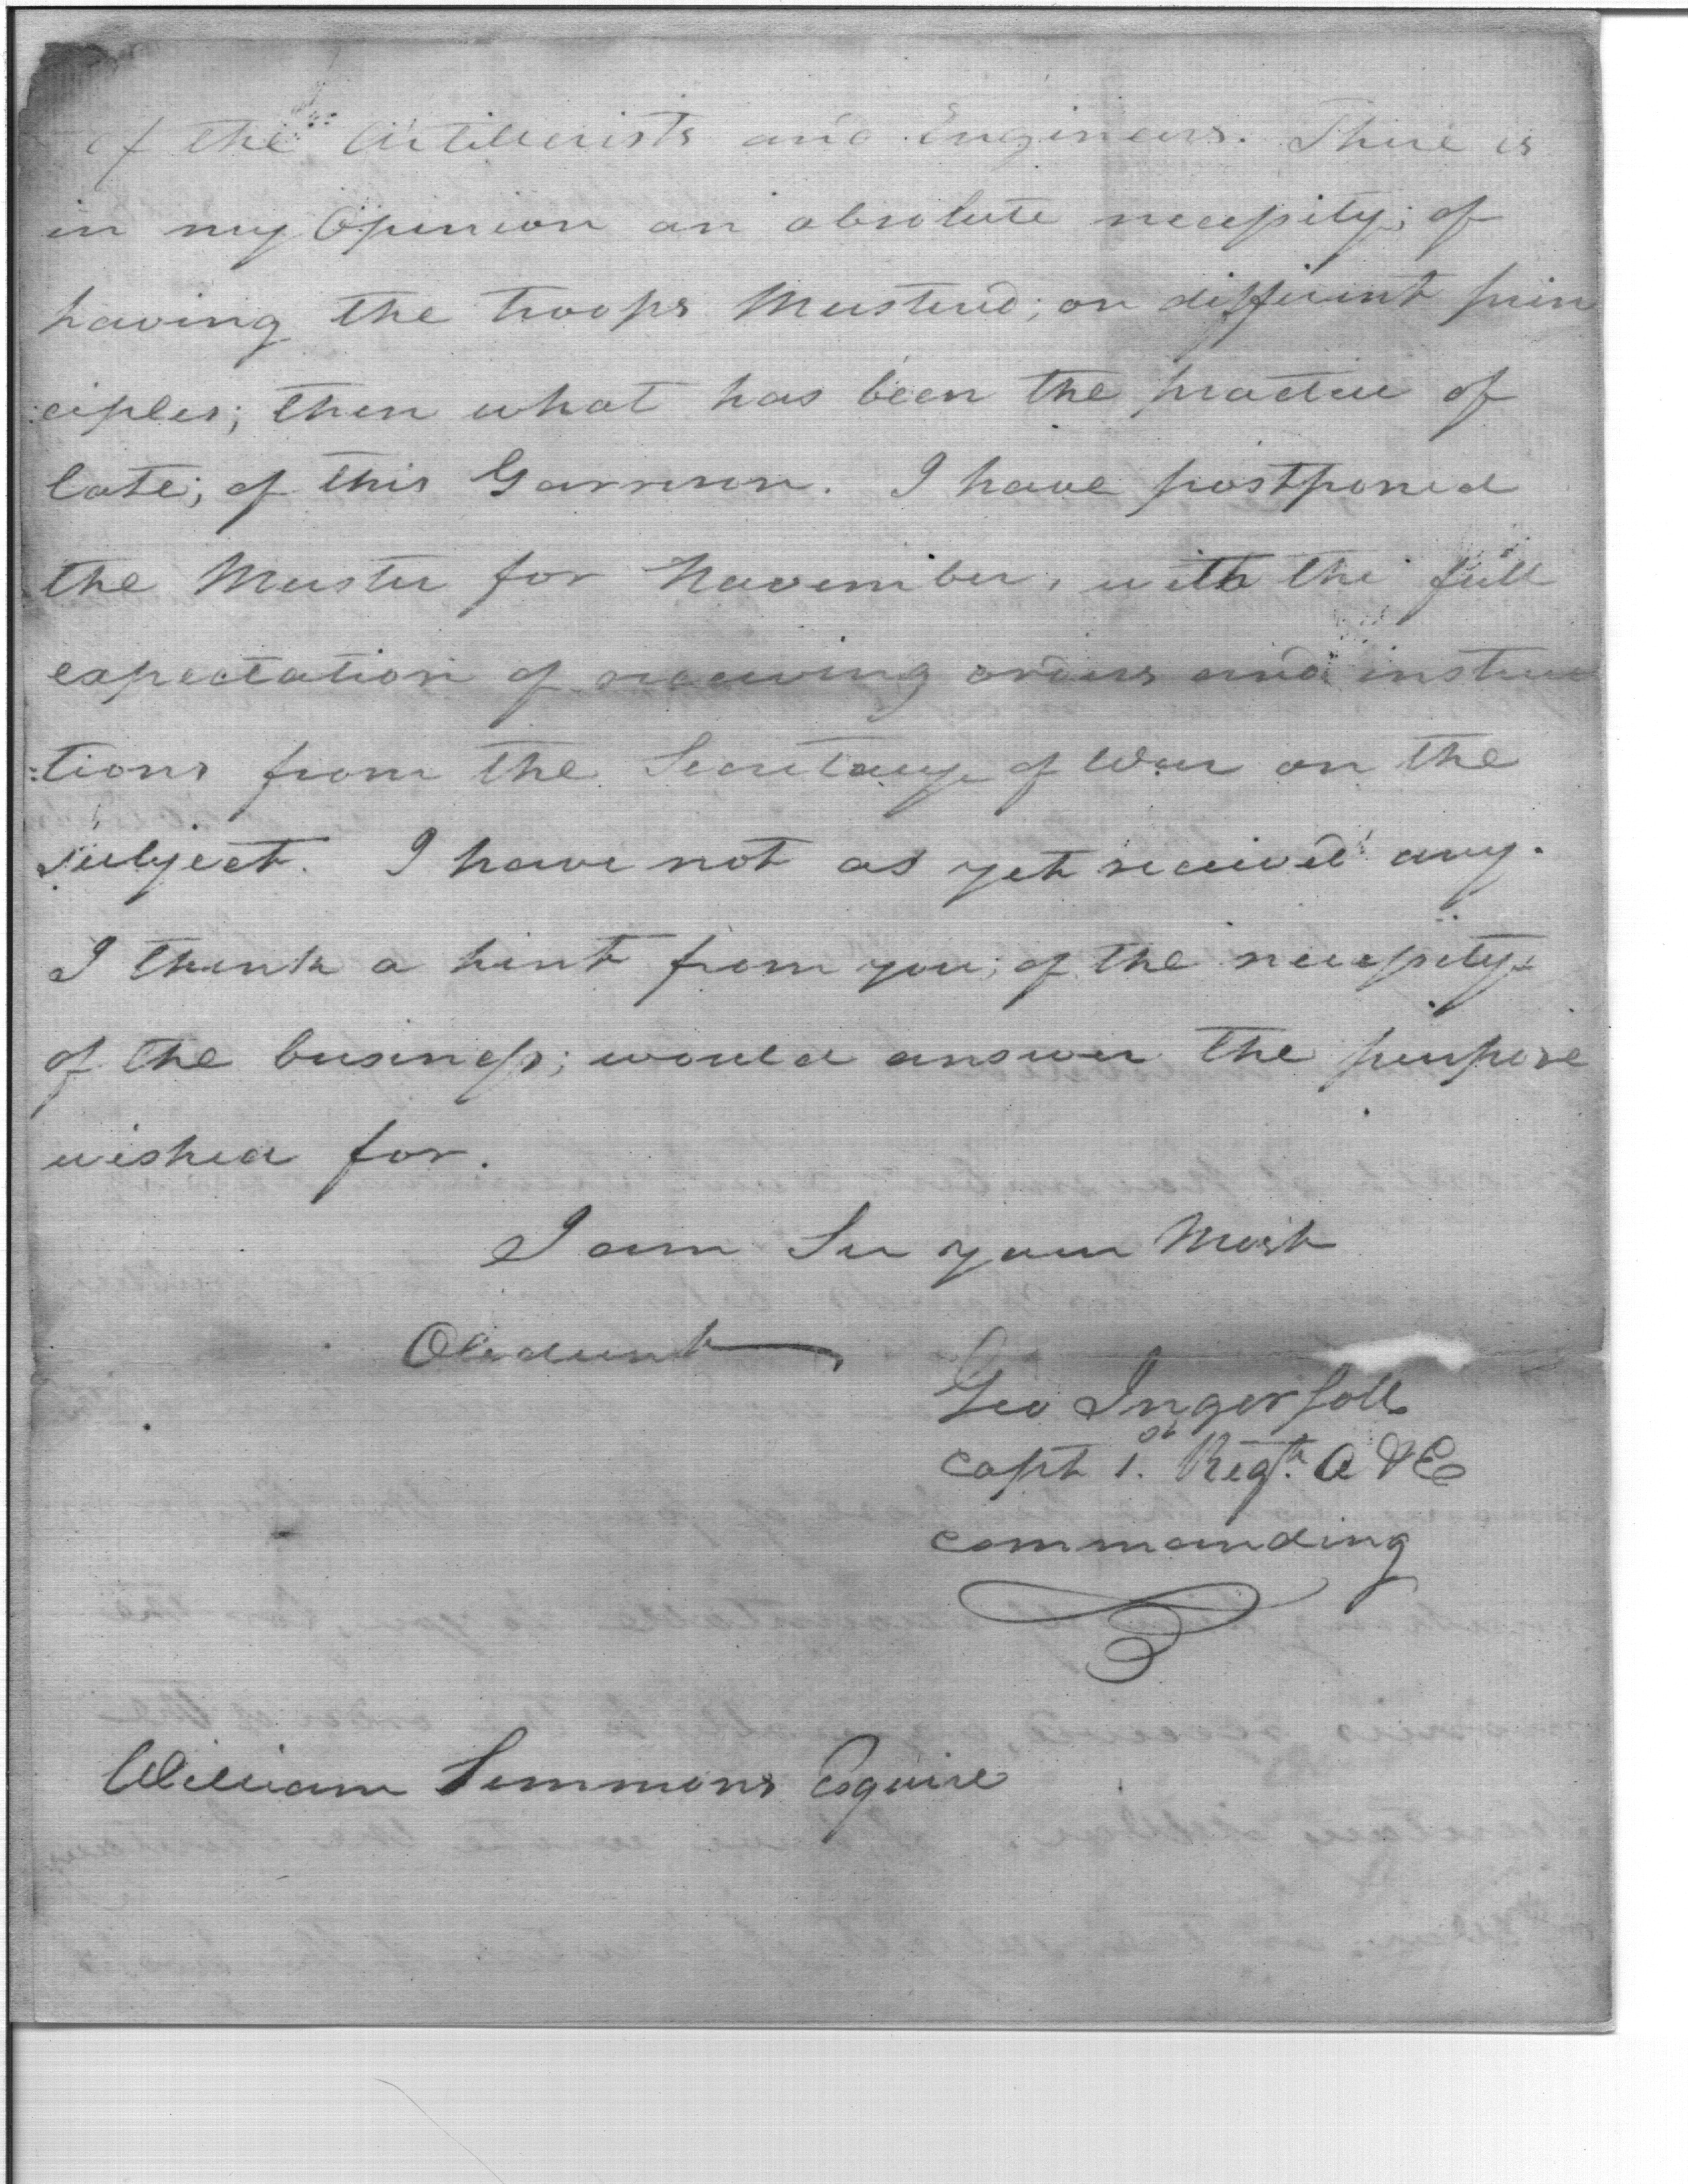 of the Artillerists and Engineers. There is
in my Opinion an absolute necessity; of
having the troops Musterd; on different prin
:ciples; then what has been the practice of
late; of this Garrison. I have postponed
the Muster for November, with the full
expectation of receiving orders and instruc
:tions from the Secretary of War on the
subject. I have not as yet received any.
I think a hint from you; of the necessity
of the business; would answer the purpose
wished for.
I am Sir your Most
Obedient
Geo Ingersoll
Capt 1.st Regt. A & E
commanding
William Simmons Esquire